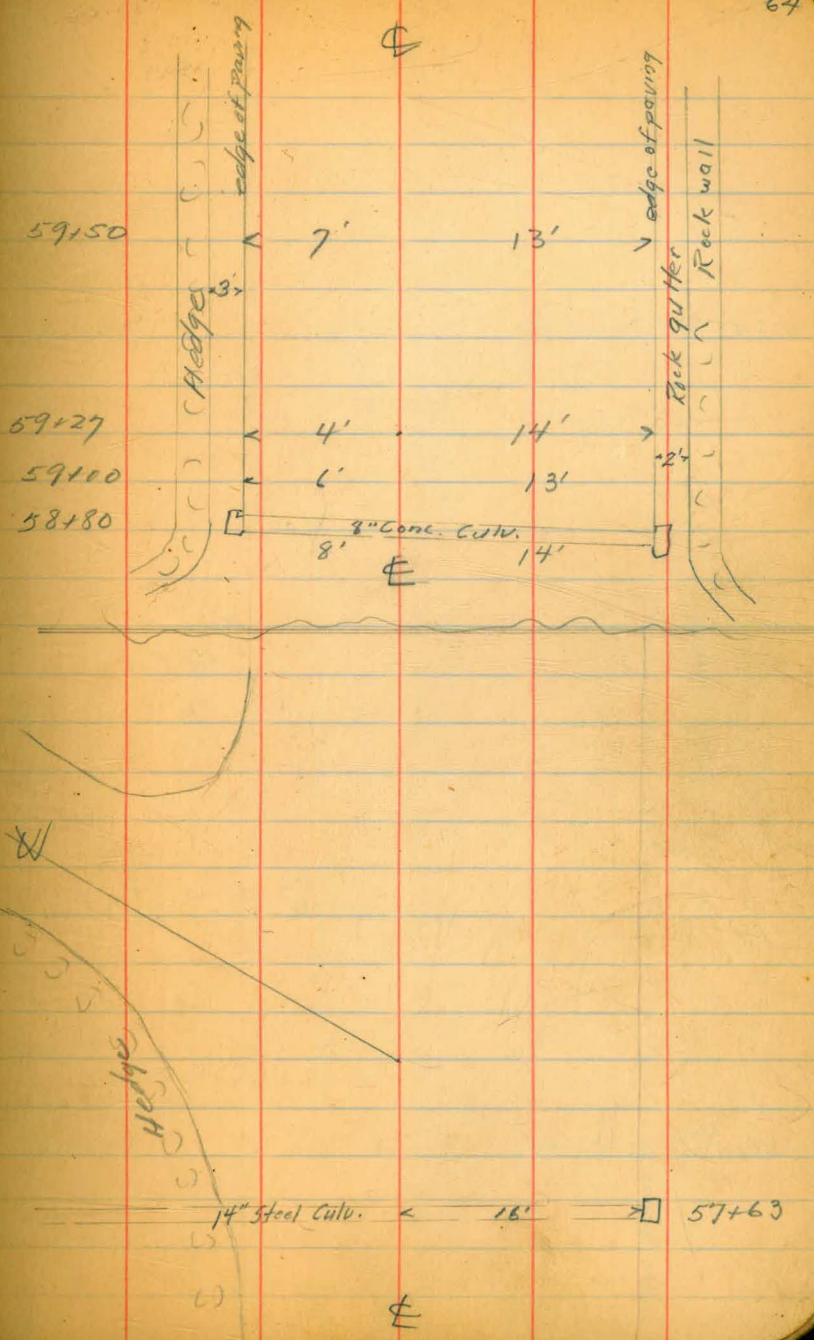 64
℄
edge of paving
edge of paving
59+50 7' 13'
Rock wall
Rock gutter
3
Hedge
59+27 4' 14'
2'
59+00 6' 13'
58+80 8" Conc. Culv.
8' 14'
℄
W
Hedge
14" Steel Culv. 16' 57+63
℄